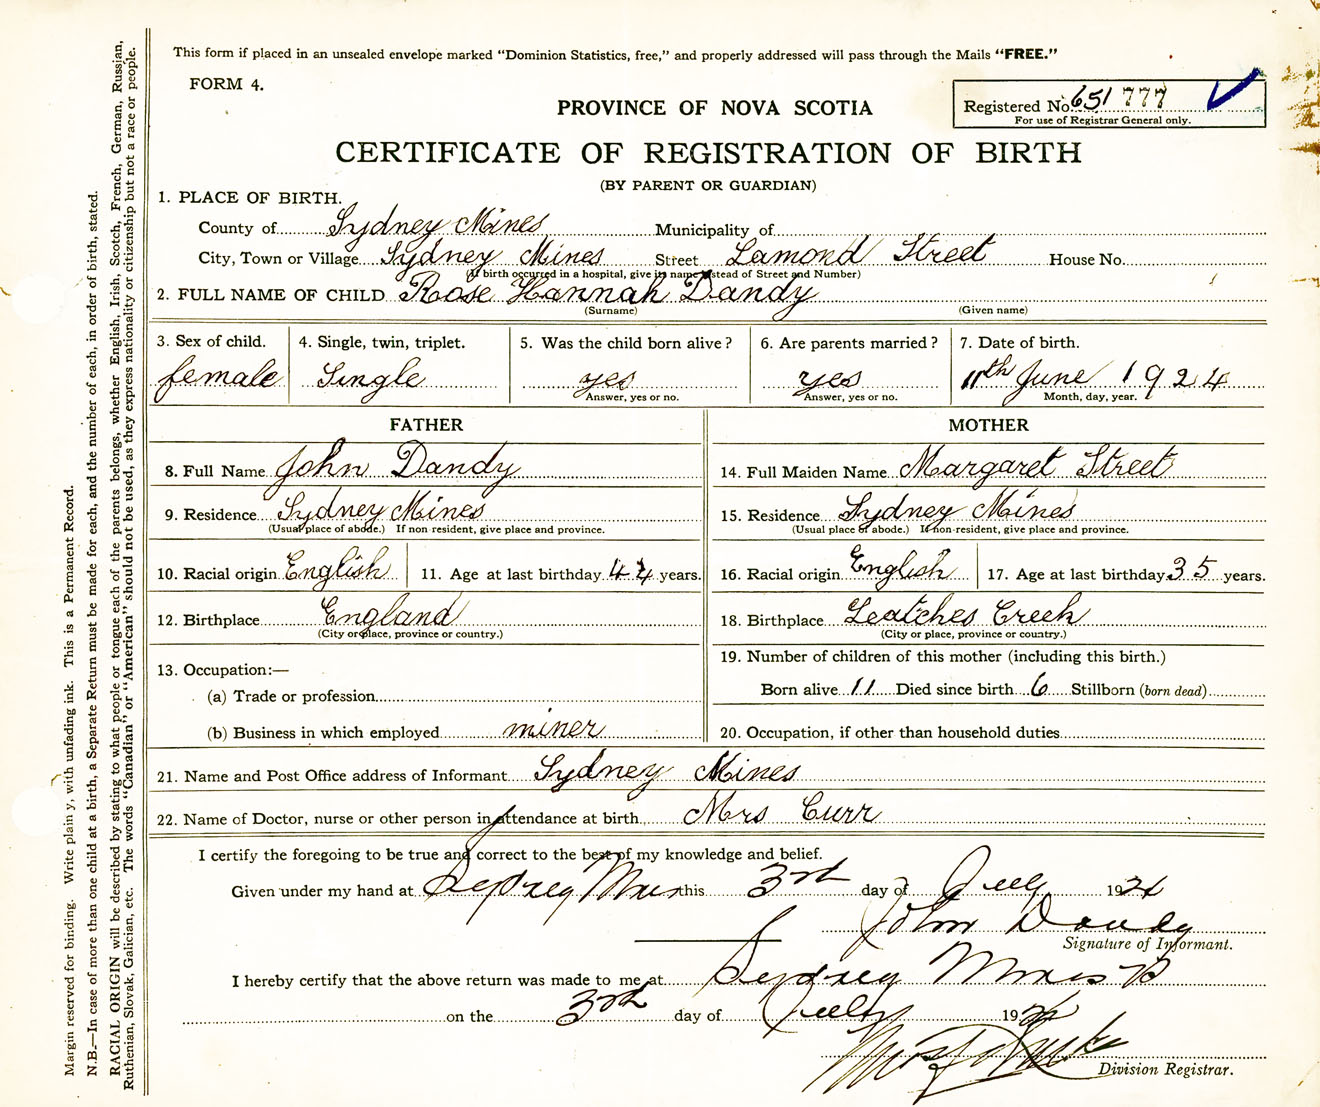 This form if placed in an unsealed envelope marked "Dominion Statistics, free," and properly addressed will pass through the Mails "FREE."
FORM 4.
PROVINCE OF NOVA SCOTIA
Registered No. 651 777
For use of Registrar General only.
CERTIFICATE OF REGISTRATION OF BIRTH
(BY PARENT OR GUARDIAN)
1. PLACE OF BIRTH.
County of Sydney Mines Municipality of
City, Town or Village Sydney Mines Street Lamond Street House No.
(If birth occurred in a hospital, give its name instead of Street and Number)
2. FULL NAME OF CHILD Rose Hannah Dandy
(Surname) (Given name)
3. Sex of child. 4. Single, twin, triplet. 5. Was the child born alive? 6. Are parents married? 7. Date of birth.
female Single yes yes 11th June 1924
Answer, yes or no. Answer, yes or no. Month, day, year.
FATHER MOTHER
8. Full Name John Dandy 14. Full Maiden Name Margaret Street
9. Residence Sydney Mines 15. Residence Sydney Mines
(Usual place of abode.) If non resident, give place and province. (Usual place of abode.) If non-resident, give place and province.
10. Racial origin English 11. Age at last birthday 44 years. 16. Racial origin English 17. Age at last birthday 35 years.
12. Birthplace England 18. Birthplace Leatches Creek
(City or place, province or country.) (City or place, province or country.)
13. Occupation:— 19. Number of children of this mother (including this birth.)
(a) Trade or profession Born alive 11 Died since birth 6 Stillborn (born dead)
(b) Business in which employed miner 20. Occupation, if other than household duties
21. Name and Post Office address of Informant Sydney Mines
22. Name of Doctor, nurse or other person in attendance at birth Mrs Curr
I certify the foregoing to be true and correct to the best of my knowledge and belief.
Given under my hand at Sydney Mines this 3rd day of July 1924
John Dandy
Signature of Informant.
I hereby certify that the above return was made to me at Sydney Mines
on the 3rd day of July 1924
Division Registrar.
Margin reserved for binding. Write plain y, with unfading ink. This is a Permanent Record.
N.B.—In case of more than one child at a birth, a Separate Return must be made for each, and the number of each, in order of birth, stated.
RACIAL ORIGIN will be described by stating to what people or tongue each of the parents belongs, whether English, Irish, Scotch, French, German, Russian,
Ruthenian, Slovak, Galician, etc. The words "Canadian" or "American" should not be used, as they express nationality or citizenship but not a race or people.